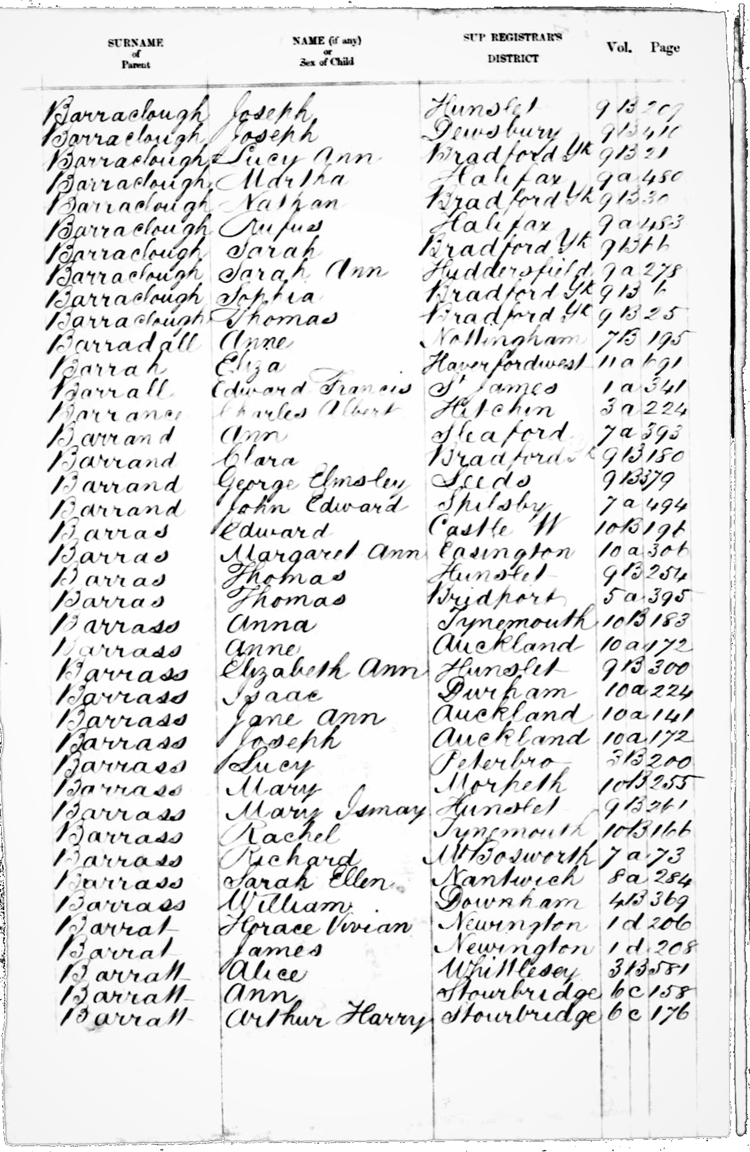 SURNAME of Parent NAME (if any) or Sex of Child SUP REGISTRAR'S DISTRICT Vol. Page
Barraclough Joseph Hunslet 9B 209
Barraclough Joseph Dewsbury 9B 410
Barraclough Lucy Ann Bradford Yk 9B 21
Barraclough Martha Halifax 9a 480
Barraclough Nathan Bradford Yk 9B 30
Barraclough Rufus Halifax 9a 483
Barraclough Sarah Bradford Yk 9B 66
Barraclough Sarah Ann Huddersfield 9a 278
Barraclough Sophia Bradford Yk 9B 6
Barraclough Thomas Bradford Yk 9B 25
Barradall Anne Nottingham 7B 195
Barrah Eliza Haverfordwest 11a 691
Barrall Edward Francis St James 1a 341
Barrance Charles Albert Hitchin 3a 224
Barrand Ann Sleaford 7a 393
Barrand Clara Bradford Yk 9B 180
Barrand George Elmsley Leeds 9B 379
Barrand John Edward Spilsby 7a 494
Barras Edward Castle W 10B 196
Barras Margaret Ann Easington 10a 306
Barras Thomas Hunslet 9B 254
Barras Thomas Bridport 5a 395
Barrass Anna Tynemouth 10B 183
Barrass Anne Auckland 10a 172
Barrass Elizabeth Ann Hunslet 9B 300
Barrass Isaac Durham 10a 224
Barrass Jane Ann Auckland 10a 141
Barrass Joseph Auckland 10a 172
Barrass Lucy Peterbro 3B 200
Barrass Mary Morpeth 10B 255
Barrass Mary Ismay Hunslet 9B 261
Barrass Rachel Tynemouth 10B 166
Barrass Richard Mt Bosworth 7a 73
Barrass Sarah Ellen Nantwich 8a 284
Barrass William Downham 4B 369
Barrat Horace Vivian Newington 1d 206
Barrat James Newington 1d 208
Barratt Alice Whittlesey 3B 581
Barratt Ann Stourbridge 6c 158
Barratt Arthur Harry Stourbridge 6c 176